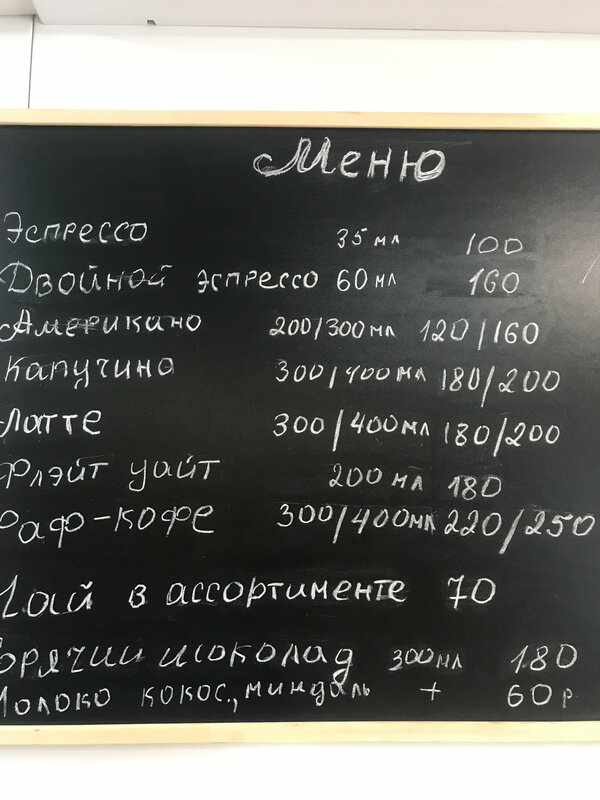 Меню
Эспрессо 35 мл 100
Двойной эспрессо 60 мл 160
Американо 200/300 мл 120/160
Капучино 300/400 мл 180/200
Латте 300/400 мл 180/200
Флэйт уайт 200 мл 180
Раф-кофе 300/400 мл 220/250
Чай в ассортименте 70
Горячий шоколад 300 мл 180
Молоко кокос., миндаль + 60 р